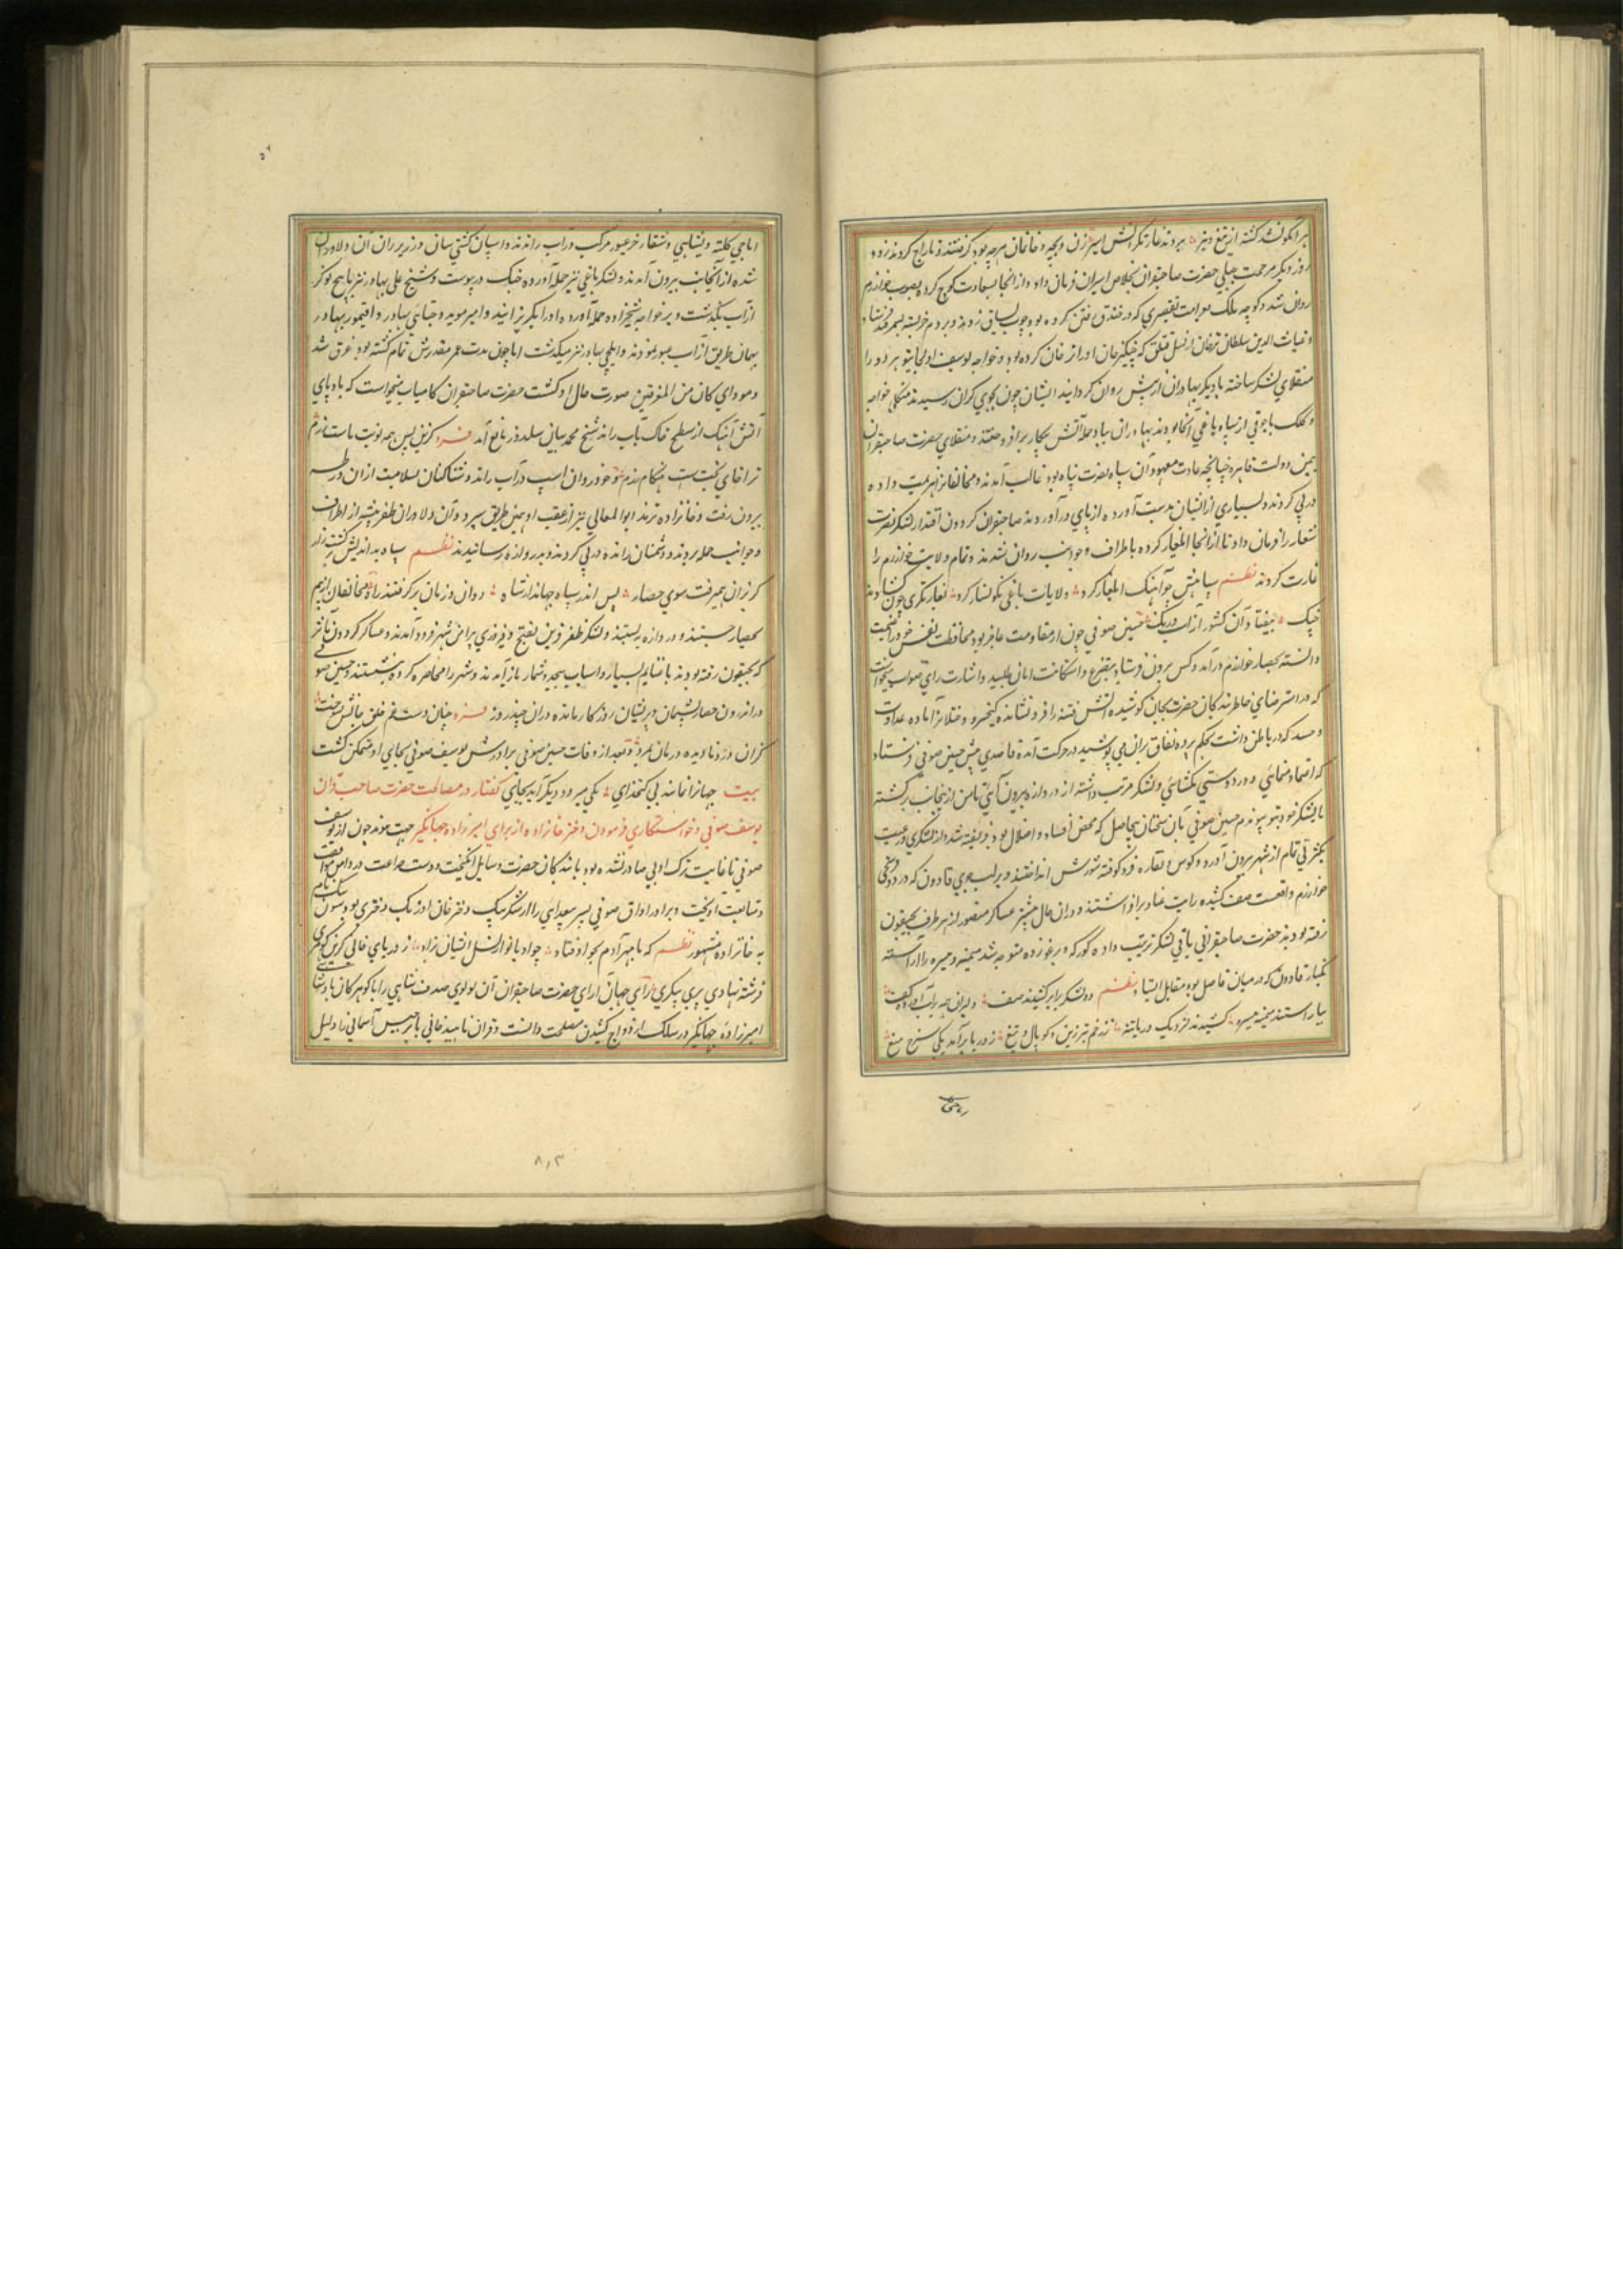 هر آنکو نشد کشته از تیغ و تیر بردند غارتکرانش اسیر زن و بچه و خانمان هرچه بود کرفتند و تاراج کردند زود
روز دیکر مرحمت جبلی حضرت صاحبقران بخلاص اسیران فرمان داد و از انجا بسعادت کوچ کرده بصوب خوارزم
روان شد و کوچه ملک بواسطه تقصیری که در خندق کرده بود چوب یساق زدند و بر دم خر بسته بسمرقند فرستاد
و غیاث الدین سلطان ترخان از نسل قشلق که چنکیزخان او را ترخان کرده بود و خواجه یوسف اولجایتو هر دو را
منقلای لشکر ساخته با دیکر بهادران از پیش روان کردانید ایشان چون بجوی کران رسیدند منکلی خواجه
و ملک باجوقی از سپاه یاغی انجا بودند بهادران بباد حمله آتش پیکار برافروختند و منقلای حضرت صاحبقران
بیمن دولت قاهره چنانچه عادت معهود آن سپاه نصرت پناه بود غالب آمدند و مخالفانرا هزیمت داده
در پی کردند و بسیاری از ایشان بدست آورده از پای درآوردند صاحبقران کردون اقتدار لشکر نصرت
شعار را فرمان داد تا از انجا ایلغار کرده باطراف و جوانب روان شدند و تمام ولایت خوارزم را
غارت کردند نظم سپاهش چو آهنک ایلغار کرد ولایات یاغی نکونسار کرد بغارتکری چون کشادند
چنک بیفتاد آن کشور از آب و رنک حسین صوفی چون از مقاومت عاجز بود محافظت نفس خود را غنیمت
دانسته بحصار خوارزم درآمد و کس بیرون فرستاد و بتضرع و استکانت امان طلبید و اشارت رای صواب میخواست
که در استرضای خاطر بندکان حضرت بجان کوشیده آتش فتنه را فرو نشاند کیخسرو ختلانی از ماده عداوت
و حسد که در باطن داشت بحکم پرده نفاق بران می پوشید در حرکت آمده قاصدی پیش حسین صوفی فرستاد
که اعتماد منمای و در دوستی بکشای و لشکر مرتب داشته از دروازه بیرون آی تا من از اینجانب برکشته
با لشکر خود بتو پیوندم حسین صوفی بان سخنان بیحاصل که محض افساد و اضلال بود فریفته شد و از لشکری و رعیت
بکثرتی تمام از شهر بیرون آورد و کوس و نقاره فروکوفته شورش انداختند و بر لب جوی قاون که در دو فرسخی
خوارزم واقعست صف کشیده رایت عناد برافراشتند و دران حال بیشتر عساکر منصور از هر طرف بجیقون
رفته بودند حضرت صاحبقرانی باقی لشکر ترتیب داده کورکه و برغو زده متوجه شد میمنه و میسره را آراسته
بکنار قاون که در میان فاصل بود مقابل ایستاد نظم دو لشکر برابر کشیدند صف دلیران همه بر لب آورده کف
بیاراستند میمنه میسره کشیدند نزدیک دریا تنه ز زخم تبرزین و کوپال و تیغ ز دریا برآمد یکی سرخ میغ
ایاجی کلته و پشایی و شنقار خر عبور مرکب در آب راندند و اسپان کشتی سان در زیر ران آن دلاوران
شده از آنجانب بیرون آمدند و لشکر یاغی نیز حمله آورده جنک در پیوست و شیخ علی بهادر نیز با پنج نوکر
از آب بکذشت و بر خواجه شیخ زاده حمله آورده او را بکریزانید و امیر موید و ختای بهادر و اقتیمور بهادر
بهمان طریق از آب عبور نمودند و ایلچی بهادر نیز میکذشت اما چون مدت عمر مقدرش تمام کشته بود غرق شد
و مودای کان من المغرقین صورت حال او کشت حضرت صاحبقران کامیاب میخواست که بادپای
آتش آهنک از سطح خاک بآب راند شیخ محمد بیان سلدوز مانع آمد فرد کزین پس همه نوبت ماست رزم
ترا جای تخت است هنکام بزم و خود روان اسپ در آب راند و شناکنان بسلامت ازان ورطه
بیرون رفت و خانزاده ترمد ابوالمعالی نیز از عقب او بهمین طریق سپرد و آن دلاوران ظفر پیشه از اطراف
و جوانب حمله بردند و دشمنان رانده در پی کردند و بدروازه رسانیدند نظم سپاه بداندیش برکشت زار
کریزان همیرفت سوی حصار پس اندر سپاه جهاندار شاه دوان و زنان برکرفتند راه مخالفان از بیم
بحصار جستند و دروازه ببستند و لشکر ظفر قرین بفتح و فیروزی براین شهر فرود آمدند و عساکر کردون مآثر
که بجیقون رفته بودند با غنایم بسیار و اسباب بیحد و شمار باز آمدند و شهر را محاصره کرده بنشستند و حسین صوفی
در اندرون حصار پشیمان و پریشان روزکار مانده دران چند روز فرد چنان دست غم حلق جانش بسخت
کران درد نادیده درمان بمرد و بعد از وفات حسین صوفی برادرش یوسف صوفی بجای او متمکن کشت
بیت جهانرا نماند بی کتخدای یکی میرود دیکر آید بجای گفتار در مصالحت حضرت صاحب قران
یوسف صوفی و خواستکاری فرمودن دختر خانزاده از برای امیرزاده جهانکیر جهت موید چون از یوسف
صوفی تا غایت ترک ادبی صادر نشده بود با بندکان حضرت وسایل انکیخت و دست ضراعت در دامن موافقت
و متابعت آویخت و برادر او آق صوفی پسر سعدای را از شکر بیک دختر خان اوزبک دختری بود سیون بیک نام
به خانزاده مشهور نظم که تا مهر آدم بحوا فتاد چو او بانو از نسل ایشان نزاد ز دریای خانی کزین کوهری
فرشته نهادی پری پیکری رای جهان آرای حضرت صاحبقران آن لولوی صدف شاهی را با کوهر کان پادشاهی
امیرزاده جهانکیر در سلک ازدواج کشیدن مصلحت دانست و قران ناهید خانی با برجیس آسمانی را دلیل